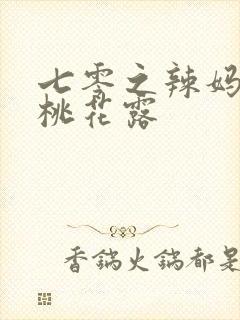 七零之辣妈
桃花露
香锅火锅都是